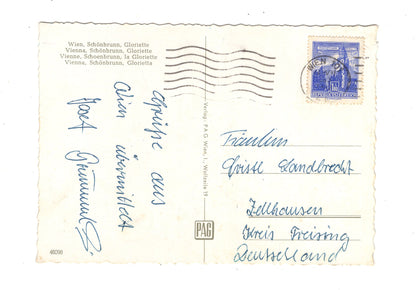 Wien, Schönbrunn, Gloriette
Vienna, Schönbrunn, Gloriette
Vienne, Schoenbrunn, la Gloriette
Vienna, Schönbrunn, Gloriette
Grüße aus
Wien übermittelt
Verlag PAG Wien, I., Wollzeile 19
PAG
46098
WIEN
Fräulein
Christl Landbrecht
Zellhausen
Kreis Freising
Deutschland